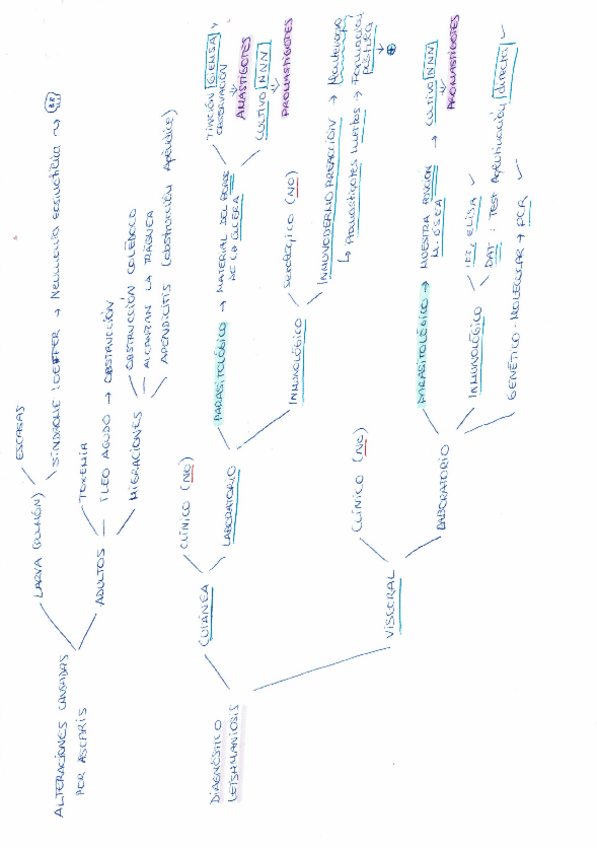 ALTERACIONES CAUSADAS
POR ASCARIS
LARVA (PULMÓN)
ESCASAS
SÍNDROME LOEFFLER → NEUMONÍA EOSINOFÍLICA
ADULTOS
TOXEMIA
ÍLEO AGUDO → OBSTRUCCIÓN
MIGRACIONES
OBSTRUCCIÓN COLÉDOCO
ALCANZAN LA TRÁQUEA
APENDICITIS (OBSTRUCCIÓN APÉNDICE)
DIAGNÓSTICO
LEISHMANIOSIS
CUTÁNEA
CLÍNICO (NO)
LABORATORIO
PARASITOLÓGICO → MATERIAL DEL BORDE
DE LA ÚLCERA
TINCIÓN GIEMSA
OBSERVACIÓN
AMASTIGOTES
CULTIVO NNN
PROMASTIGOTES
INMUNOLÓGICO
SEROLÓGICO (NO)
INMUNODERMO REACCIÓN → MONTENEGRO
↳ PROMASTIGOTES MUERTOS → FORMACIÓN
PÁPULA
⊕
VISCERAL
CLÍNICO (NO)
LABORATORIO
PARASITOLÓGICO → MUESTRA
M. ÓSEA
→ CULTIVO NNN
PROMASTIGOTES
INMUNOLÓGICO
IFI, ELISA ✓
DAT: TEST AGLUTINACIÓN DIRECTA ✓
GENÉTICO-MOLECULAR → PCR ✓